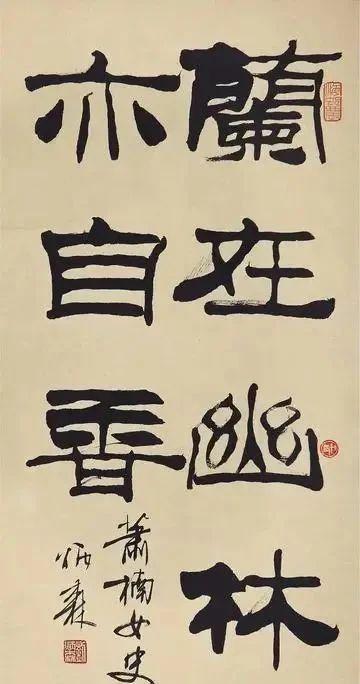 蘭在幽林
亦自香
蕭楠女史
炳森